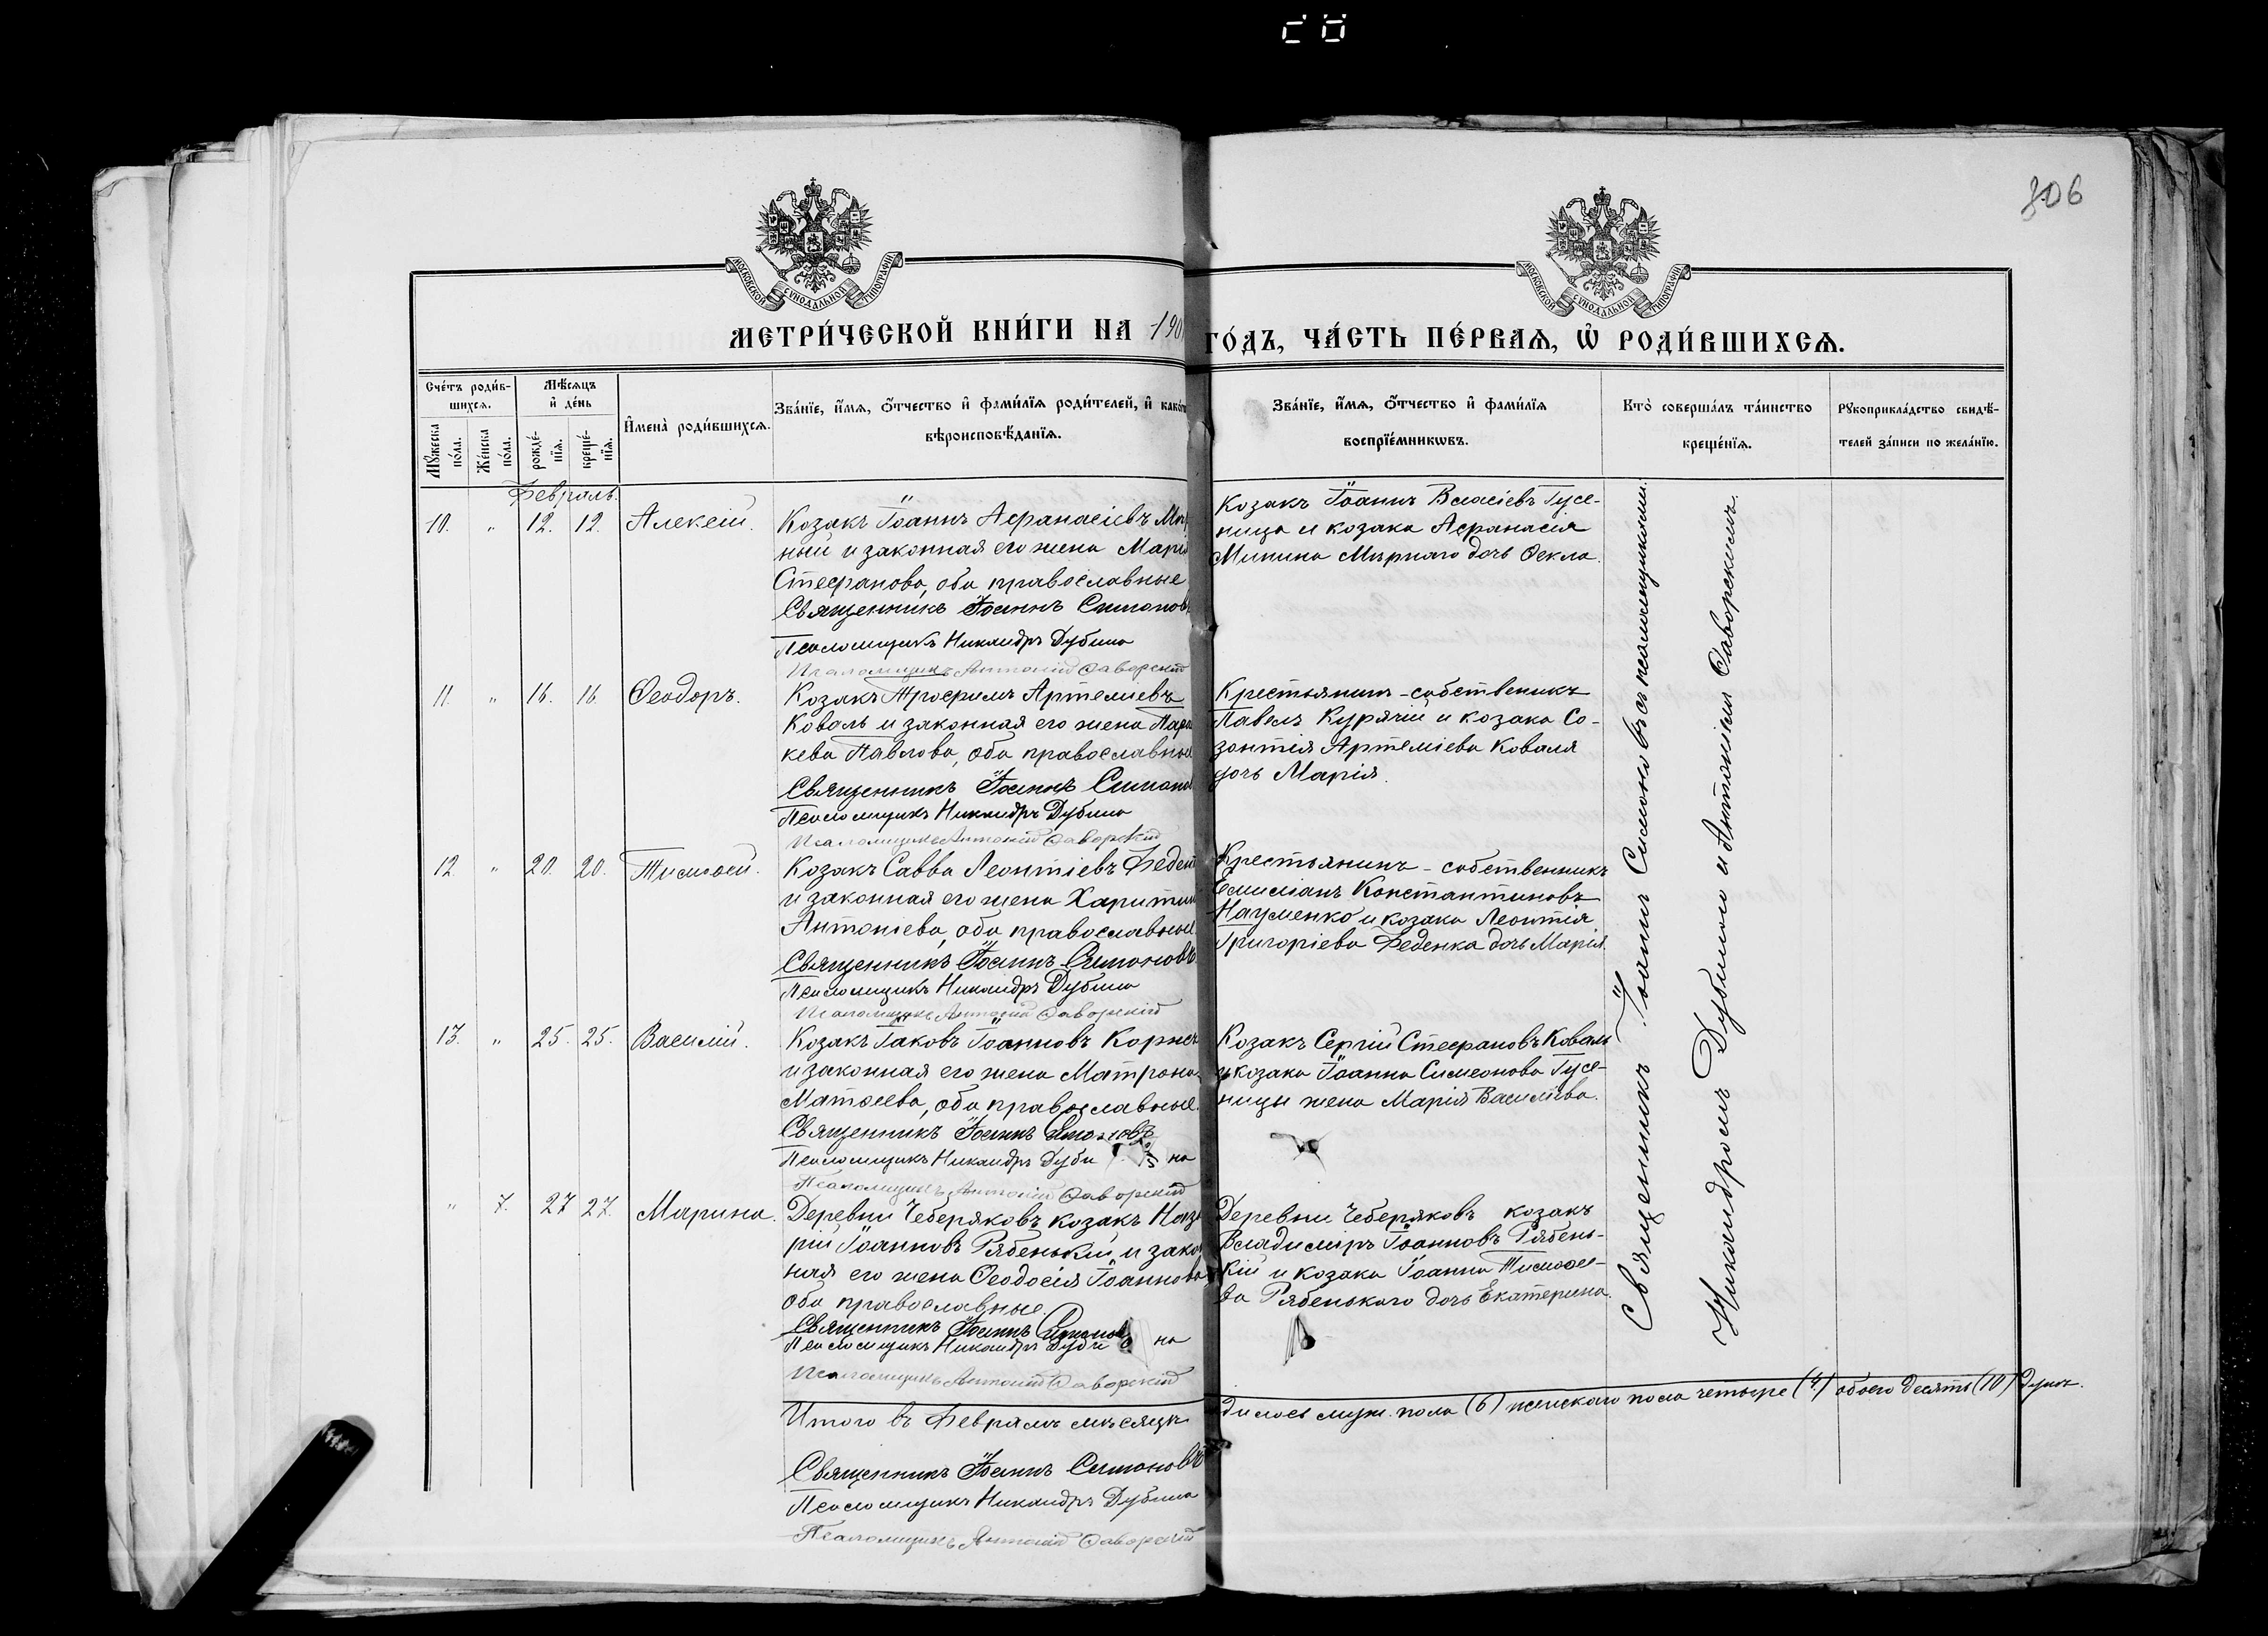 806
МОСКОВСКОЙ СѴНОДАЛЬНОЙ ТИПОГРАФІИ
МОСКОВСКОЙ СѴНОДАЛЬНОЙ ТИПОГРАФІИ
МЕТРИ́ЧЕСКОЙ КНИ́ГИ НА 190 ГО́ДЪ, ЧА́СТЬ ПЕ́РВАѦ, Ѡ҆ РОДИ́ВШИХСѦ.
Сче́тъ роди́в-
шихсѧ.
Мꙋ́жеска по́ла.
Же́нска по́ла.
Мѣ́сѧцъ
и҆ де́нь
рожде́-
нїѧ.
креще́-
нїѧ.
И҆мена̀ роди́вшихсѧ.
Зва́нїе, и҆́мѧ, ѻ҆́тчество и҆ фами́лїѧ роди́телей, и҆ како́
вѣроисповѣ́данїѧ.
Зва́нїе, и҆́мѧ, ѻ҆́тчество и҆ фами́лїѧ
воспрїе́мникѡвъ.
Кто̀ соверша́лъ та́инство
креще́нїѧ.
Рꙋкоприкла́дство свидѣ́-
телей за́писи по жела́нїю.
Февраль.
10. " 12. 12. Алексій.
Козакъ Іоаннъ Аѳанасіевъ Мир
ный и законная его жена Марія
Стефанова, оба православные
Священникъ Іоаннъ Симоновъ
Псаломщикъ Никандръ Дубина
Псаломщикъ Антоній Фаворскій
Козакъ Іоаннъ Власіевъ Гусе-
ница и козака Аѳанасія
Минина Мирнаго дочь Ѳекла.
11. " 16. 16. Ѳеодоръ.
Козакъ Трофимъ Артеміевъ
Коваль и законная его жена Парас
кева Павлова, оба православные
Священникъ Іоаннъ Симонов
Псаломщикъ Никандръ Дубина
Псаломщикъ Антоній Фаворскій
Крестьянинъ-собственикъ
Павелъ Курячій и козака Со-
зонтія Артеміева Коваля
дочь Марія.
12 " 20. 20. Тимоѳей.
Козакъ Савва Леонтіевъ Феден
и законная его жена Харитин
Антоніева, оба православные
Священникъ Іоаннъ Симоновъ
Псаломщикъ Никандръ Дубина
Псаломщикъ Антоній Фаворскій
Крестьянинъ-собственникъ
Емиліанъ Константиновъ
Науменко и козака Леонтія
Григоріева Феденка дочь Марія.
13. " 25. 25. Василій.
Козакъ Іаковъ Іоанновъ Корнен
и законная его жена Матрона
Матѳеева, оба православные.
Священникъ Іоаннъ Симоновъ
Псаломщикъ Никандръ Дуби на
Псаломщикъ Антоній Фаворскій
Козакъ Сергій Стефановъ Коваль
и козака Іоанна Симеонова Гусе-
ницы жена Марія Василіева.
" 7. 27 27. Марина.
Деревни Чеберяковъ козакъ Наза
рій Іоанновъ Рябенькій и закон
ная его жена Ѳеодосія Іоаннова
оба православные.
Священникъ Іоаннъ Симонов
Псаломщикъ Никандръ Дуби на
Псаломщикъ Антоній Фаворскій
Деревни Чеберяковъ козакъ
Владиміръ Іоанновъ Рябень-
кій и козака Іоанна Тимоѳее-
ва Рябенькаго дочь Екатерина.
Священникъ Іоаннъ Симоновъ съ псаломщиками
Никандромъ Дубиною и Антоніемъ Фаворскимъ.
Итого въ Февралѣ мѣсяцѣ дилось муж. пола (6) женскаго пола четыре (4) обоего десять (10) душъ.
Священникъ Іоаннъ Симоновъ
Псаломщикъ Никандръ Дубина
Псаломщикъ Антоній Фаворскій